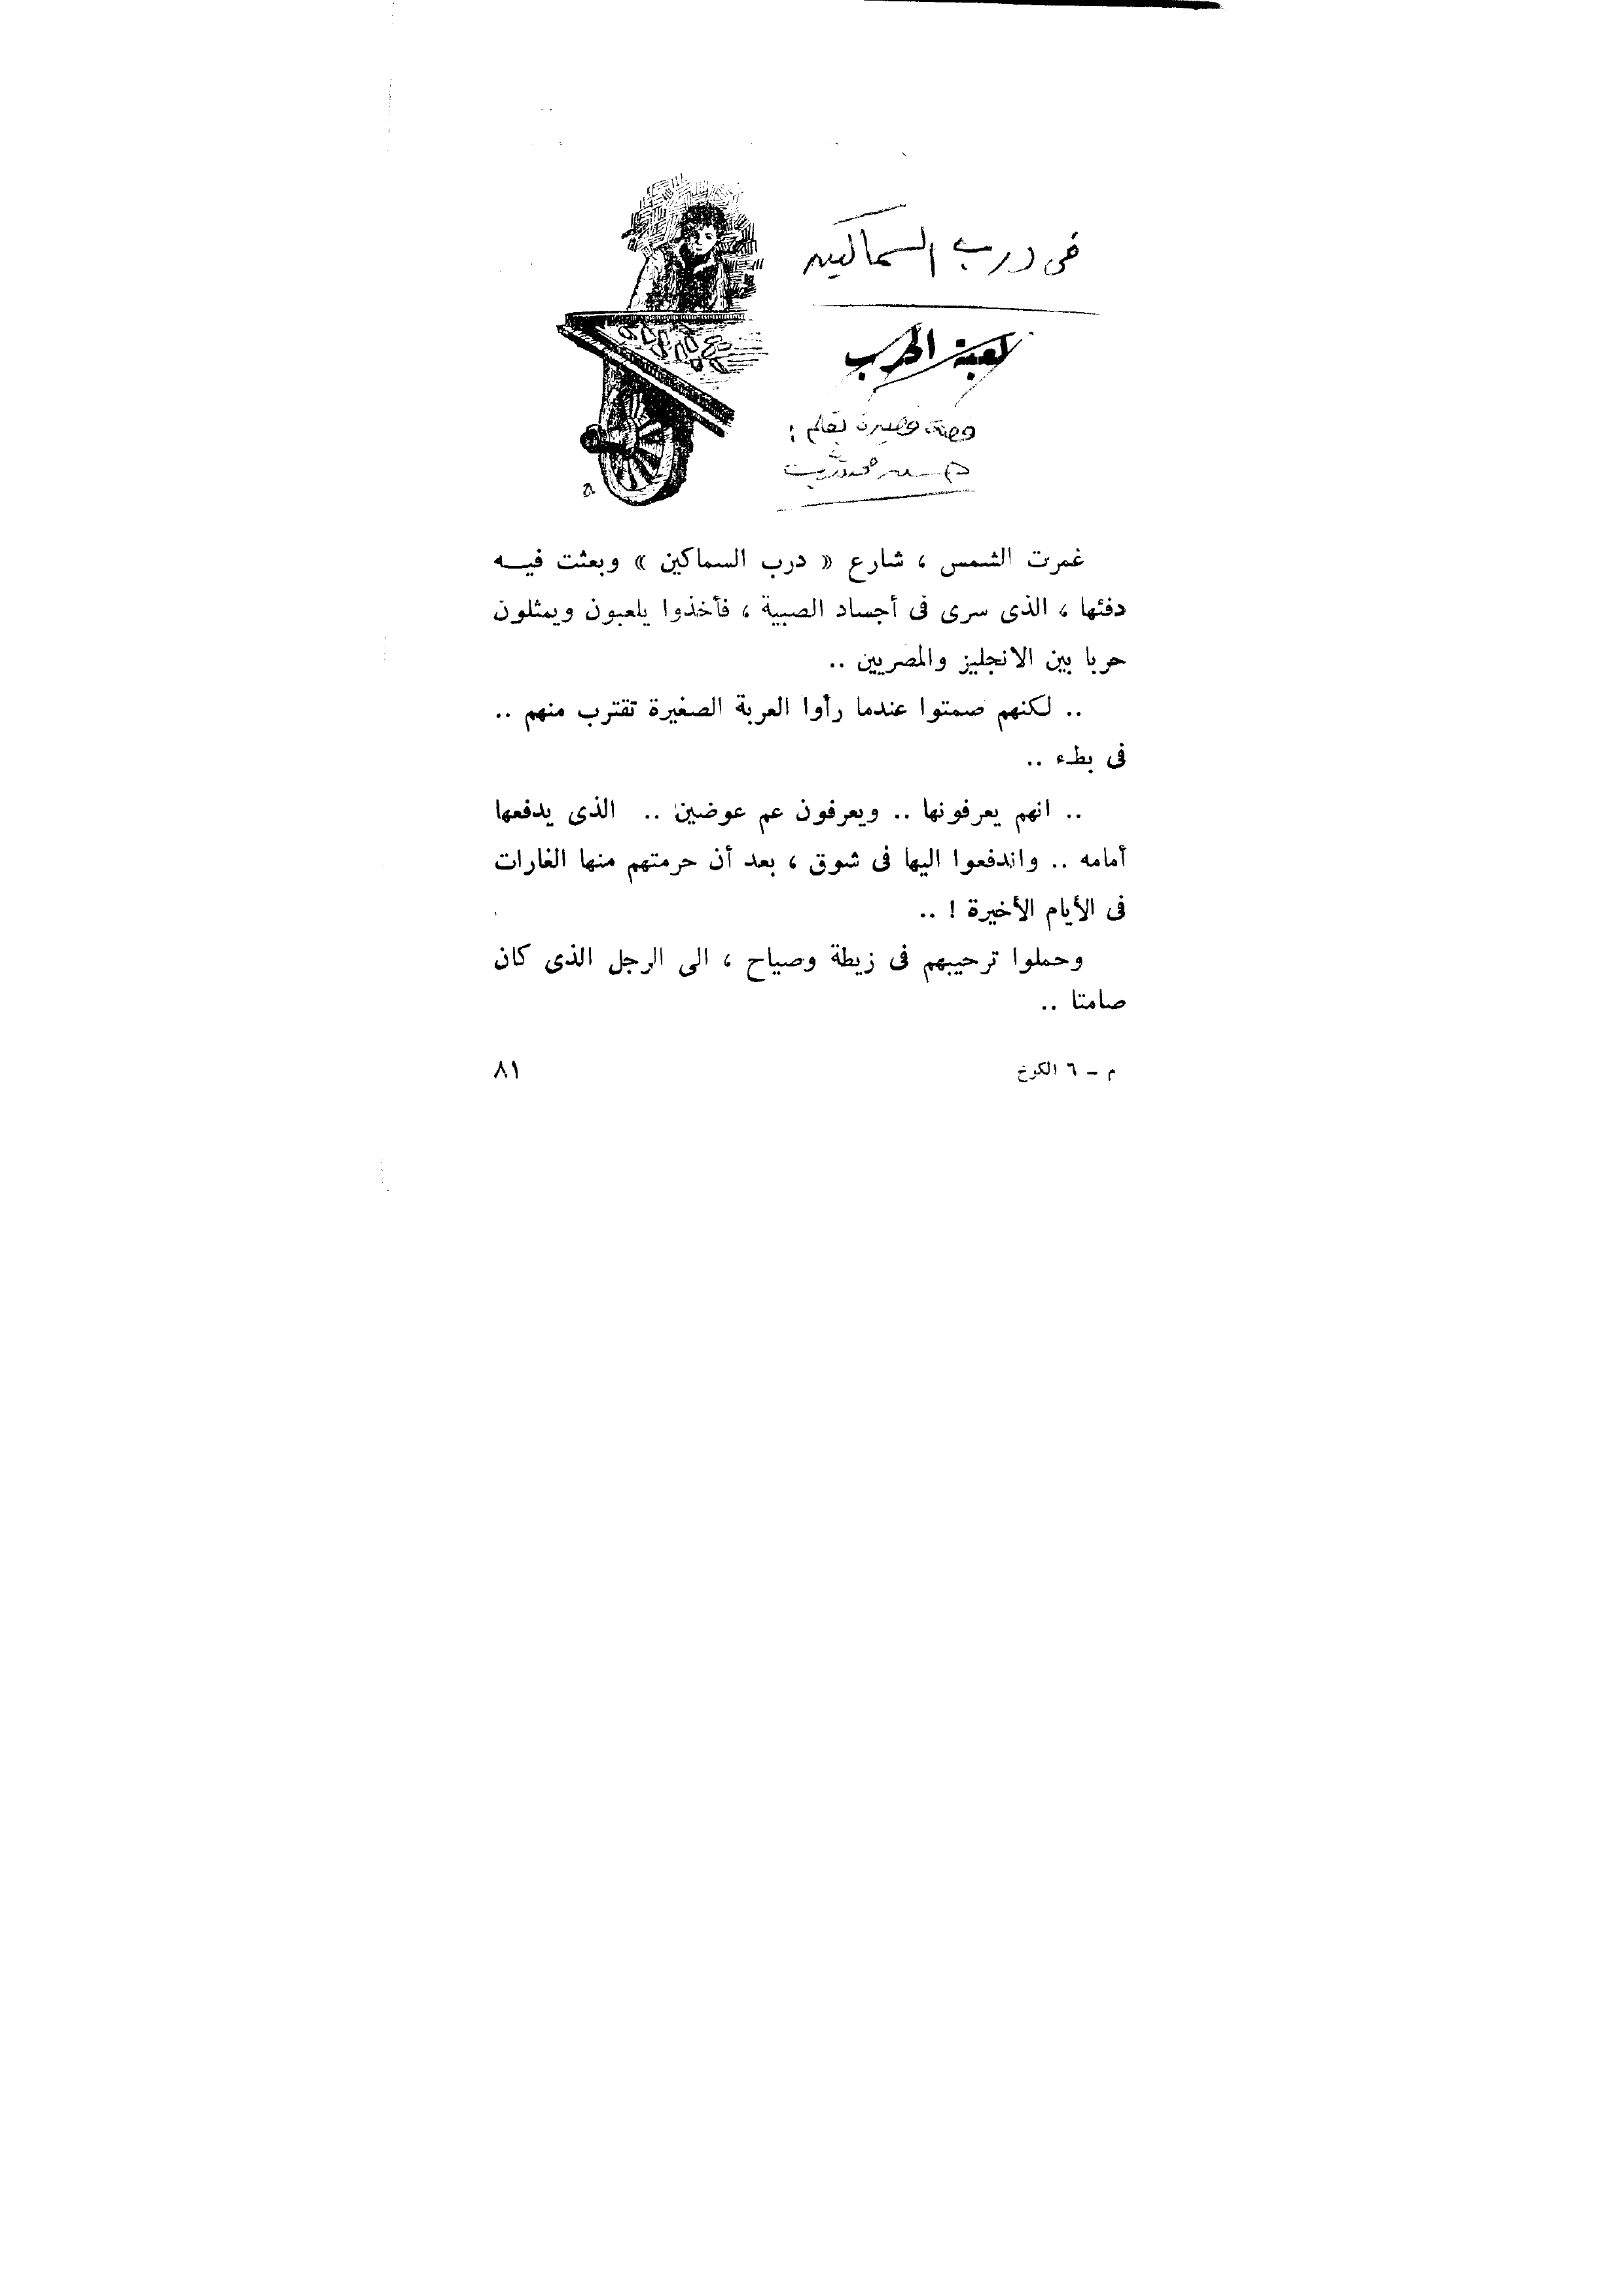 فى درب السماكين
لعبة الحرب
قصة قصيرة بقلم :
غمرت الشمس ، شارع « درب السماكين » وبعثت فيـــه
دفئها ، الذى سرى فى أجساد الصبية ، فأخذوا يلعبون ويمثلون
حربا بين الانجليز والمصريين ..
.. لكنهم صمتوا عندما رأوا العربة الصغيرة تقترب منهم ..
فى بطء ..
.. انهم يعرفونها .. ويعرفون عم عوضين .. الذى يدفعها
أمامه .. واندفعوا اليها فى شوق ، بعد أن حرمتهم منها الغارات
فى الأيام الأخيرة ! ..
وحملوا ترحيبهم فى زيطة وصياح ، الى الرجل الذى كان
صامتا ..
م – ٦ الكرخ
٨١